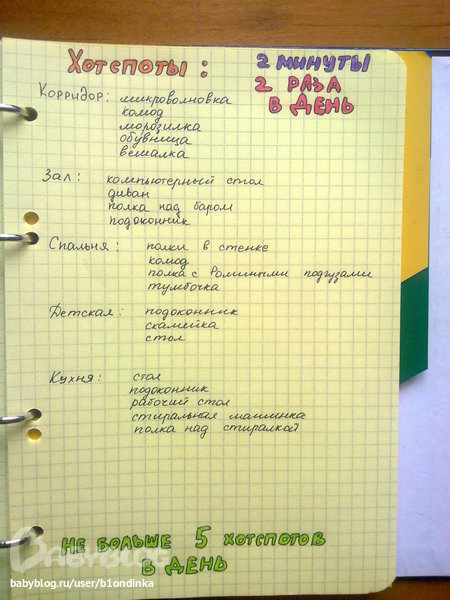 Хотспоты:
2 минуты
2 раза
в день
Корридор: микроволновка
комод
морозилка
обувница
вешалка
Зал: компьютерный стол
диван
полка над баром
подоконник
Спальня: полки в стенке
комод
полка с Ромиными подгузами
тумбочка
Детская: подоконник
скамейка
стол
Кухня: стол
подоконник
рабочий стол
стиральная машинка
полка над стиралкой
Не больше 5 хотспотов
в день
BABYBLOG
babyblog.ru/user/b1ondinka